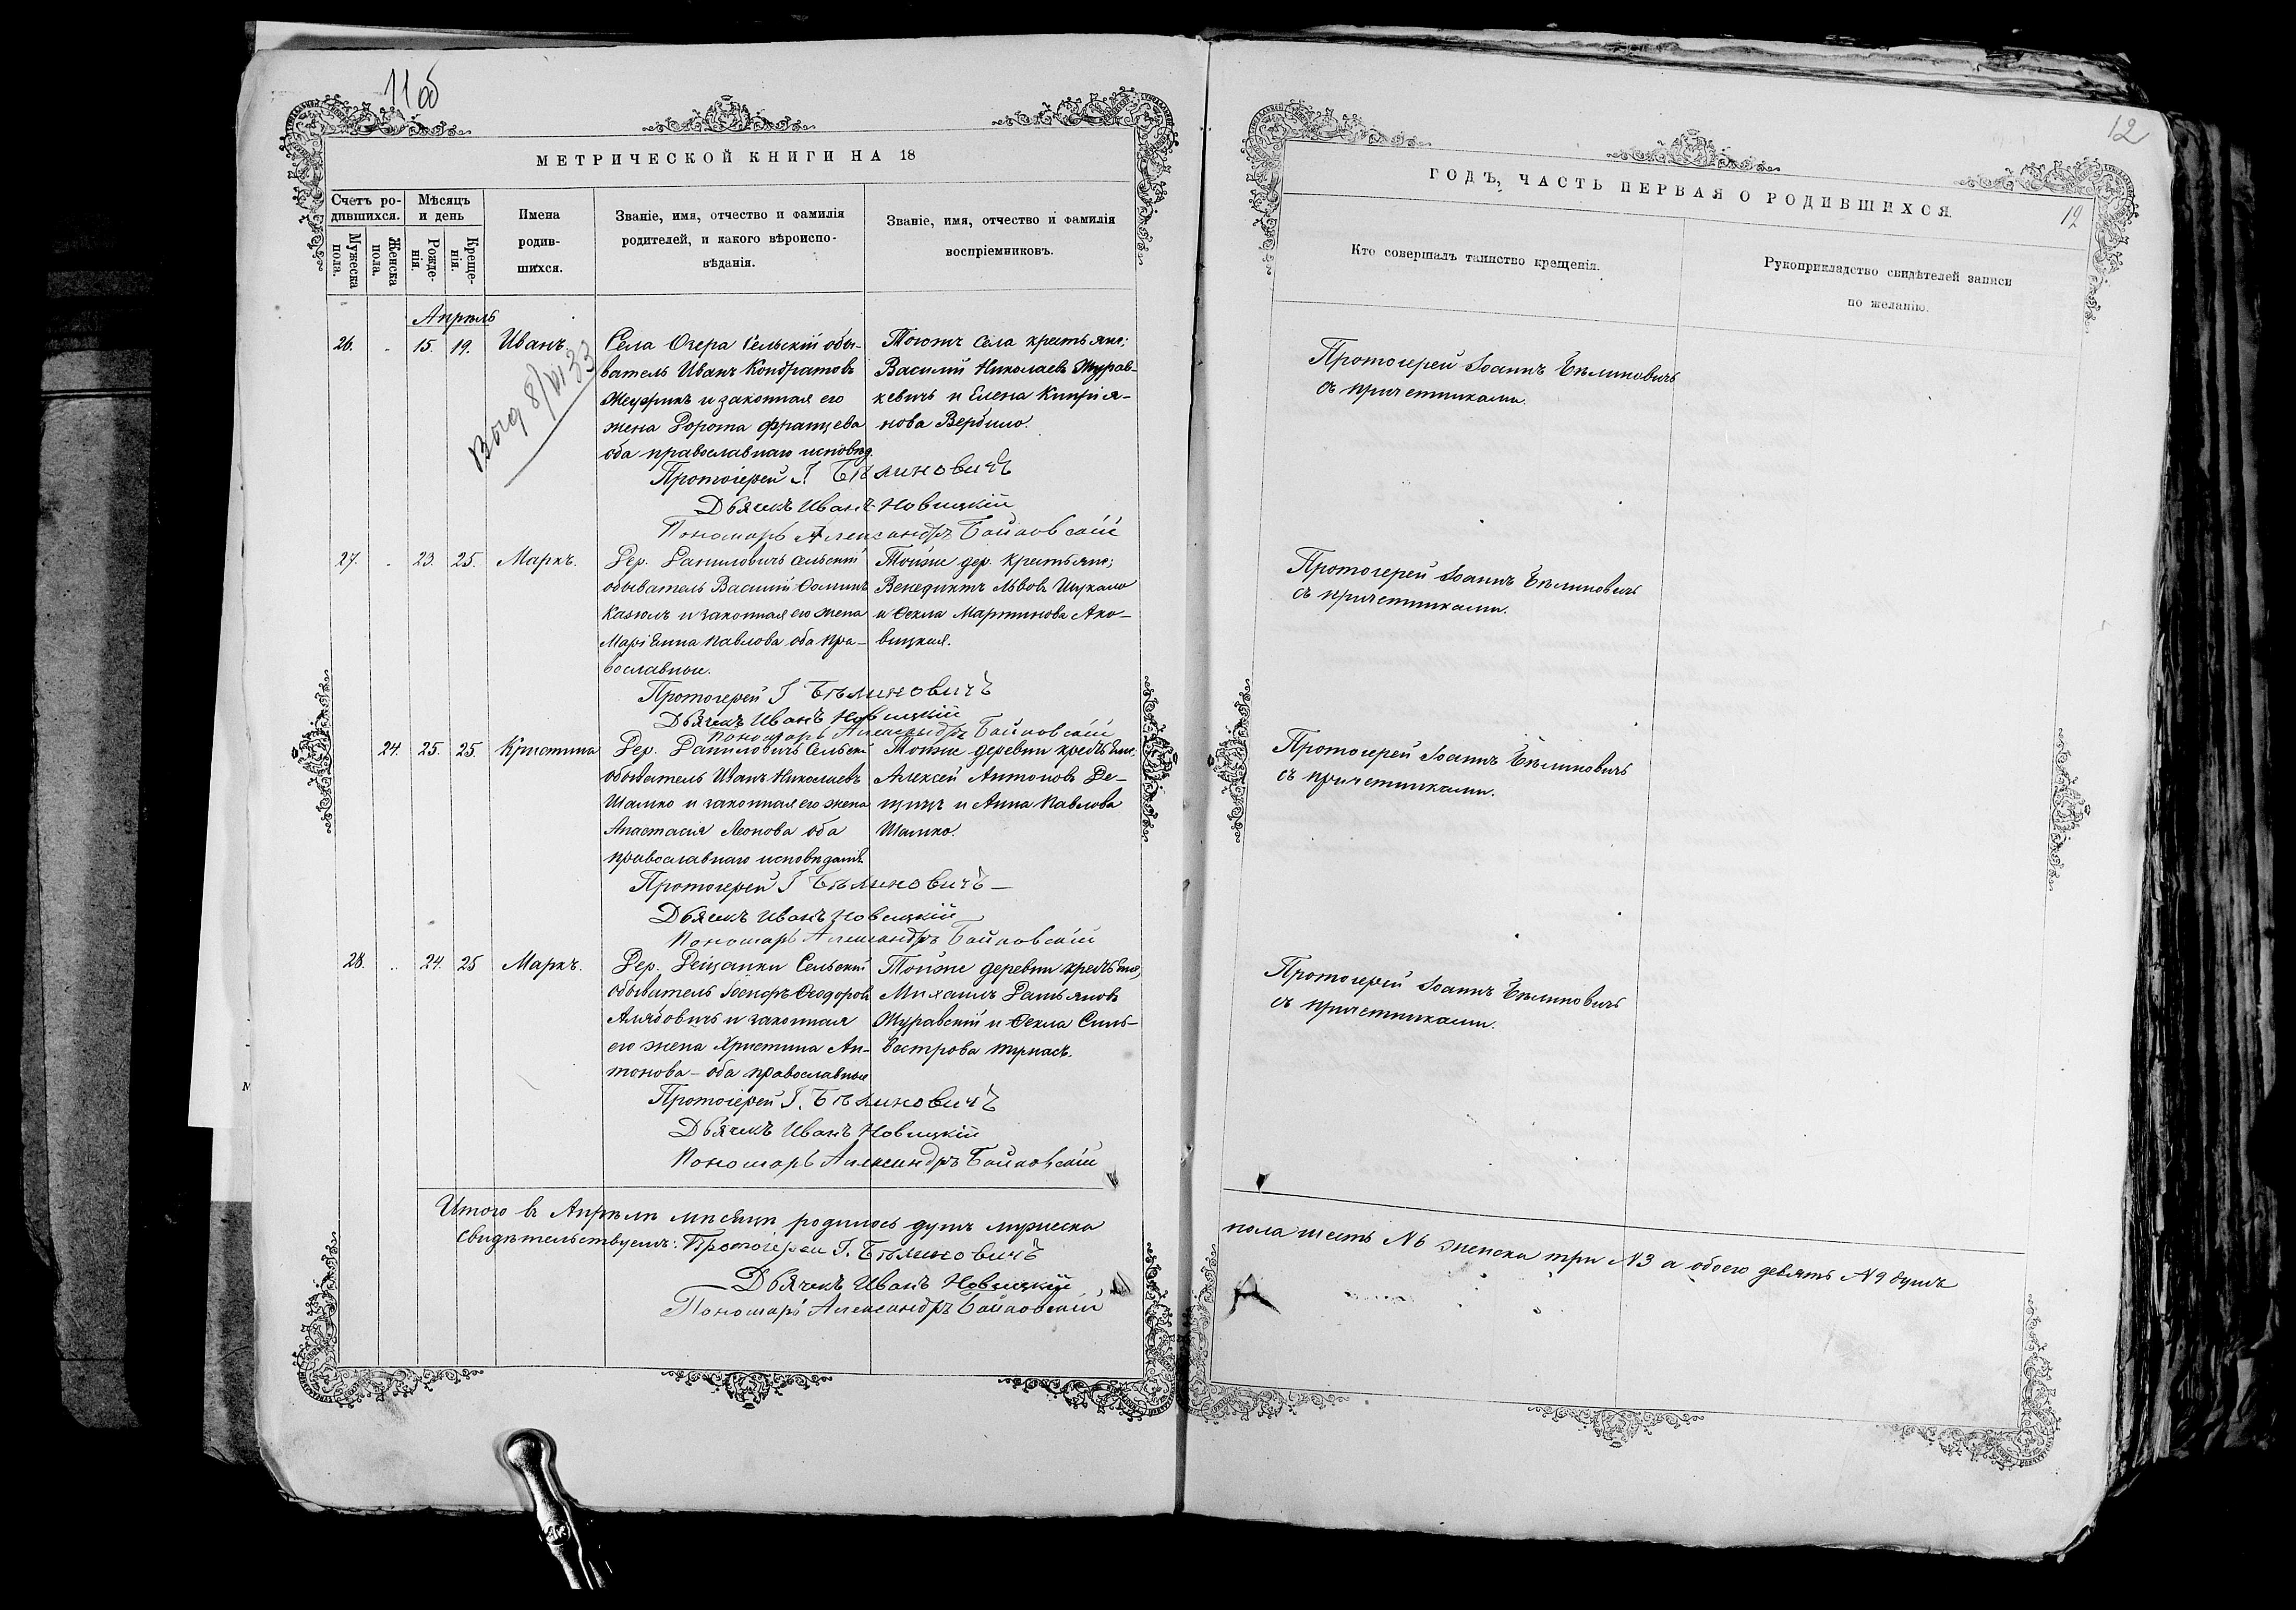 11 об
МЕТРИЧЕСКОЙ КНИГИ НА 18
Счетъ ро-
дившихся.
Мужеска пола.
Женска пола.
Мѣсяцъ
и день
Рожде-
нія.
Креще-
нія.
Имена
родив-
шихся.
Званіе, имя, отчество и фамилія
родителей, и какого вѣроиспо-
вѣданія.
Званіе, имя, отчество и фамилія
воспріемниковъ.
Апрѣль
26. 15. 19. Иванъ.
Села Озера Сельскій обы-
ватель Иванъ Кондратовъ
и законная его
жена Дорота Францева
оба православнаго исповѣд.
Тогожъ села крестьяне;
Василій Николаевъ Журав-
кевичъ и Елена Кипрія-
нова Вербило.
Выд 8/VI 33
Протоіерей І. Бѣлиновичъ
Дьячекъ Иванъ Новицкій
Пономарь Александръ Байковскій
27. 23. 25. Маркъ.
Дер. Даниловичъ сельскій
обыватель Василій Ѳоминъ
Казюлъ и законная его жена
Марiанна Павлова оба пра-
вославные.
Тойже дер. крестьяне;
Венедиктъ Львовъ Шукало
и Ѳекла Мартинова Ако-
вицкая.
Протоіерей І Бѣлиновичъ
Дьячекъ Иванъ Новицкій
Пономарь Александръ Байковскій
24. 25. 25. Кристина
Дер. Даниловичъ Сельскій
обыватель Иванъ Николаевъ
Шамко и законная его жена
Анастасія Леонова оба
православнаго исповѣданія.
Тойже деревни крестьяне;
Алексѣй Антоновъ Де-
щицъ и Анна Павлова
Шамко.
Протоіерей І Бѣлиновичъ
Дьячекъ Иванъ Новицкій
Пономарь Александръ Байковскій
28. 24. 25 Маркъ.
Дер. Дещанки Сельскій
обыватель Іосифъ Ѳеодоровъ
Алябовичъ и законная
его жена Христина Ан-
тонова – оба православные
Тойже деревни крестьяне;
Михаилъ Дамьяновъ
Журавскій и Ѳекла Силь-
вестрова
Протоіерей І. Бѣлиновичъ
Дьячекъ Иванъ Новицкій
Пономарь Александръ Байковскій
Итого въ Апрѣлѣ мѣсяцѣ родилось душъ мужеска
Свидѣтельствуемъ: Протоіерей І. Бѣлиновичъ
Дьячекъ Иванъ Новицкій
Пономарь Александръ Байковскій
12
ГОДЪ, ЧАСТЬ ПЕРВАЯ О РОДИВШИХСЯ.
12
Кто совершалъ таинство крещенія.
Рукоприкладство свидѣтелей записи
по желанію.
Протоіерей Іоаннъ Бѣлиновичъ
съ причетниками.
Протоіерей Іоаннъ Бѣлиновичъ
съ причетниками.
Протоіерей Іоаннъ Бѣлиновичъ
съ причетниками.
Протоіерей Іоаннъ Бѣлиновичъ
съ причетниками.
пола шесть №6 женска три №3 а обоего девять №9 душъ